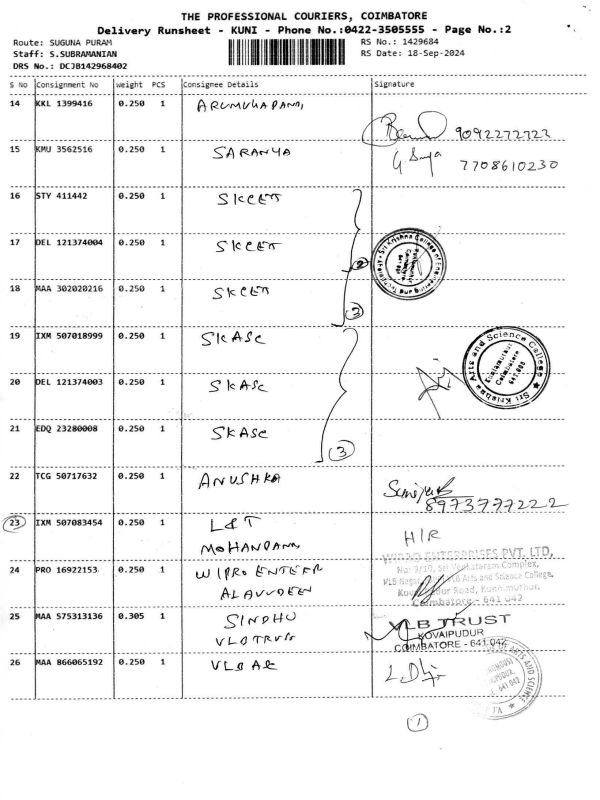 THE PROFESSIONAL COURIERS, COIMBATORE
Delivery Runsheet - KUNI - Phone No.:0422-3505555 - Page No.:2
Route: SUGUNA PURAM
RS No.: 1429684
Staff: S.SUBRAMANIAN
RS Date: 18-Sep-2024
DRS No.: DCJB142968402
S No Consignment No Weight PCS Consignee Details Signature
14 KKL 1399416 0.250 1
9092272722
15 KMU 3562516 0.250 1 SARANYA
7708610230
16 STY 411442 0.250 1 SKCET
17 DEL 121374004 0.250 1 SKCET
Sri Krishna College of Engineering and Technology
18 MAA 302020216 0.250 1 SKCET
19 IXM 507018999 0.250 1 SKASC
Sri Krishna Arts and Science College
Kuniamuthur
Coimbatore
641 008
20 DEL 121374003 0.250 1 SKASC
21 EDQ 23280008 0.250 1 SKASC
3
22 TCG 50717632 0.250 1 ANUSHKA
8973777222
23 IXM 507083454 0.250 1 L&T
H/R
24 PRO 16922153 0.250 1 WIPRO
WIPRO ENTERPRISES PVT. LTD,
Arts and Science College,
Coimbatore - 641 042
25 MAA 575313136 0.305 1 SINDHU
VLB TRUST
KOVAIPUDUR
COIMBATORE - 641 042
26 MAA 866065192 0.250 1
1